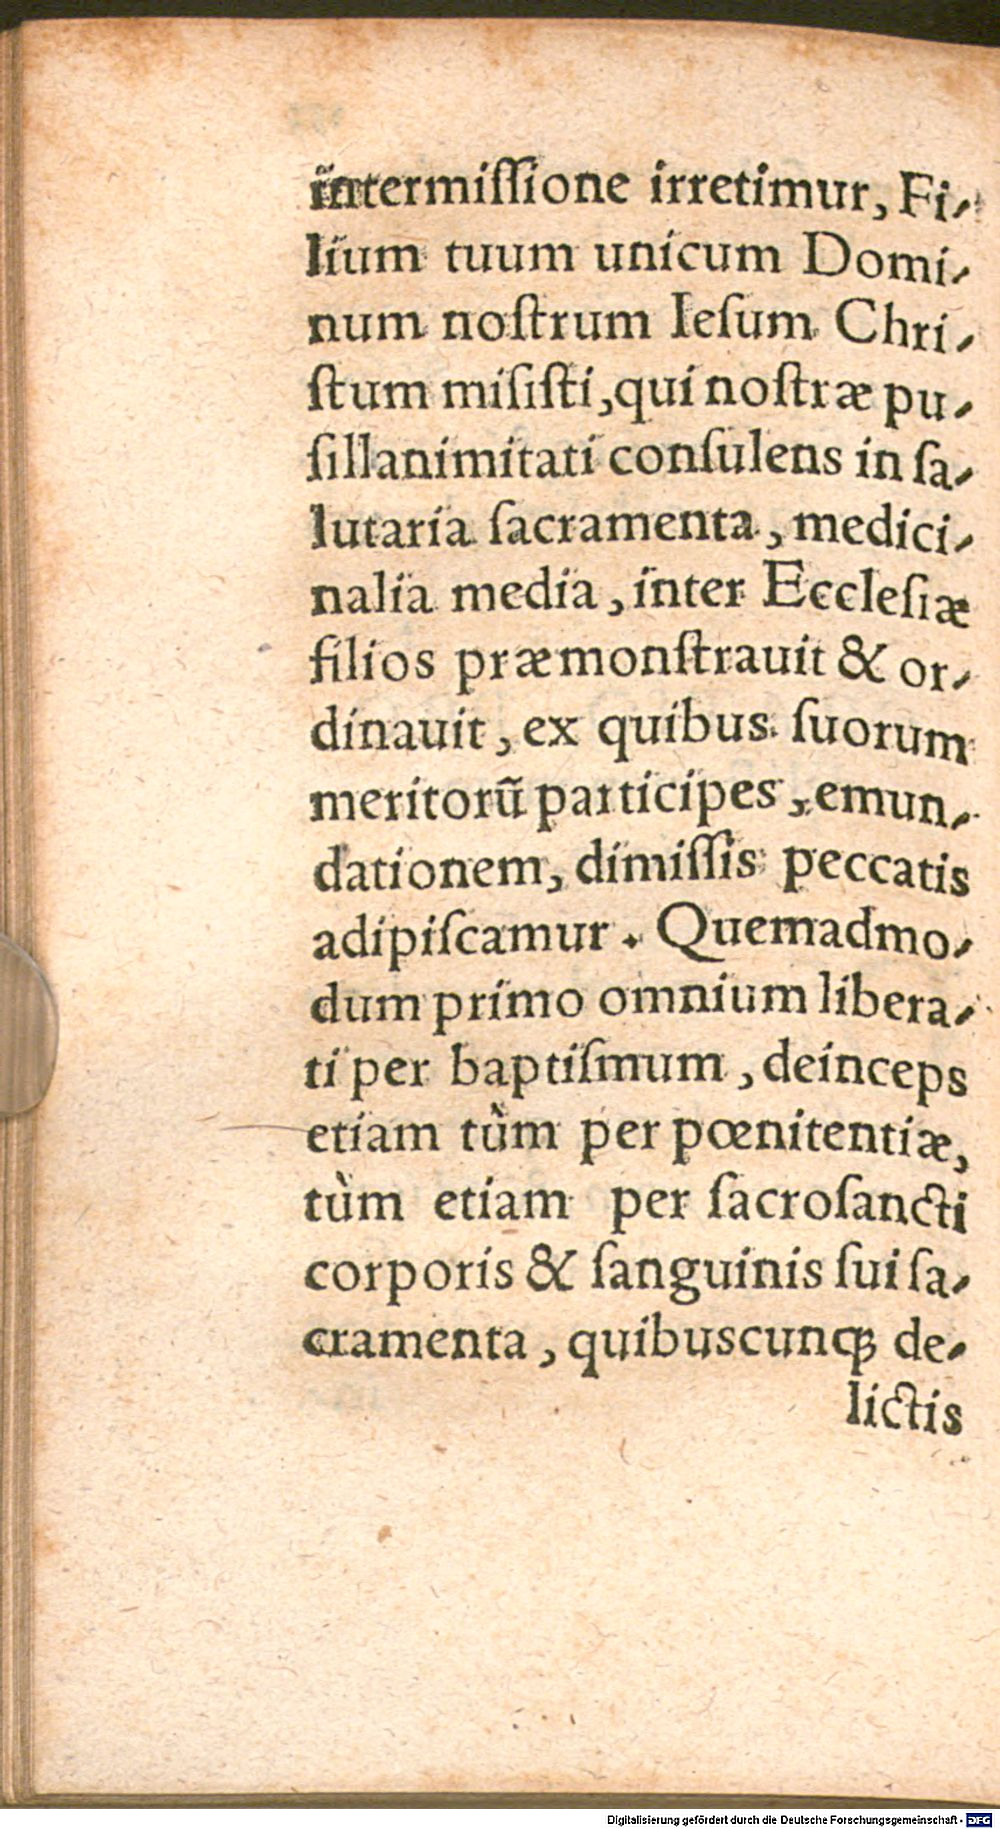 intermiſſione irretimur, Fi-
lium tuum unicum Domi-
num noſtrum Ieſum Chri-
ſtum miſiſti, qui noſtræ pu-
ſillanimitati conſulens in ſa-
lutaria ſacramenta, medici-
nalia media, inter Eccleſiæ
filios præmonſtrauit & or-
dinauit, ex quibus ſuorum
meritorũ participes, emun-
dationem, dimiſſis peccatis
adipiſcamur. Quemadmo-
dum primo omnium libera-
ti per baptiſmum, deinceps
etiam tùm per pœnitentiæ,
tùm etiam per ſacroſancti
corporis & ſanguinis ſui ſa-
cramenta, quibuscunqꝫ de-
lictis
Digitalisierung gefördert durch die Deutsche Forschungsgemeinschaft - DFG